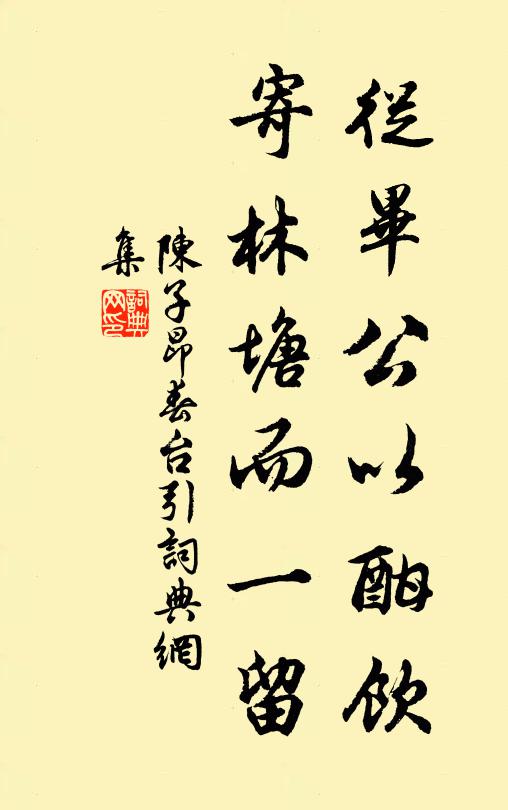 從畢公以酣飲
寄林塘而一留
陳子昂春台引詞典網
集
詞典
网印